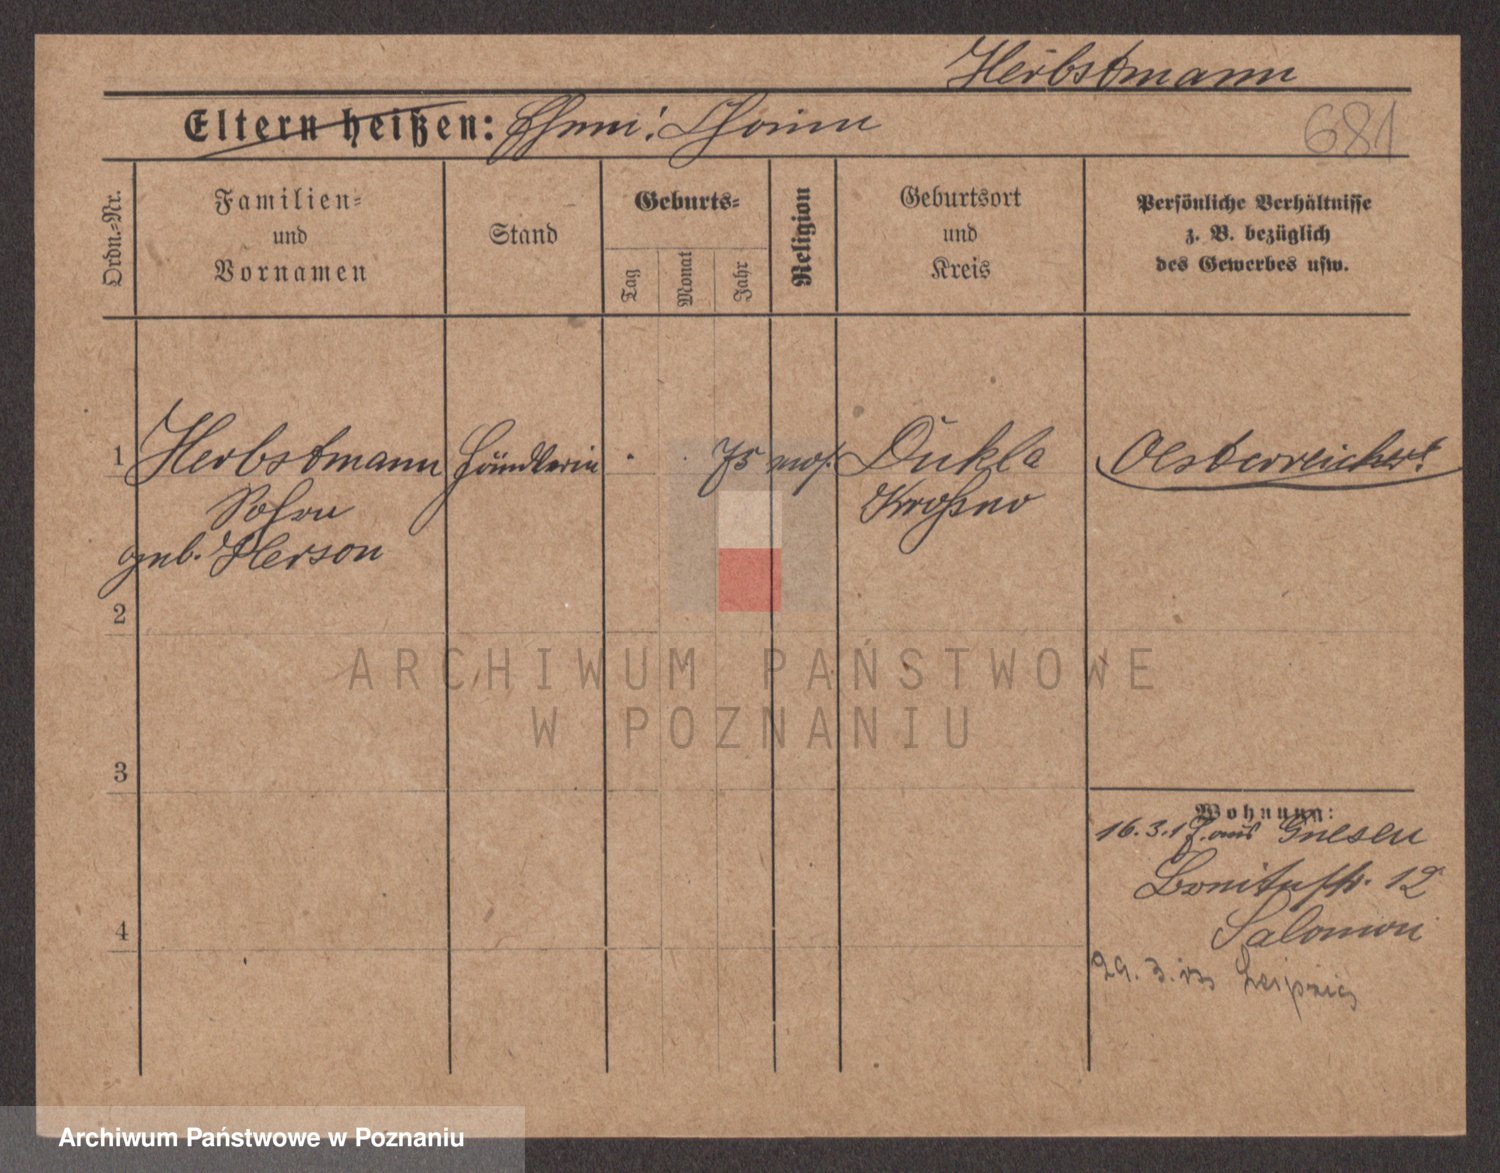 Herbstmann
Eltern heißen: Ehem: Chaim
681
Ordn.=Nr.
Familien=
und
Vornamen
Stand
Geburts=
Tag
Monat
Jahr
Religion
Geburtsort
und
Kreis
Persönliche Verhältnisse
z. B. bezüglich
des Gewerbes usw.
1 Herbstmann Händlerin 75 mos. Dukla Oesterreicher
Krosno
geb. Herson
2
ARCHIWUM PAŃSTWOWE
W POZNANIU
3
Wohnung:
16.3.17. aus Gnesen
12
4
Salomon
29.3. Leipzig
Archiwum Państwowe w Poznaniu